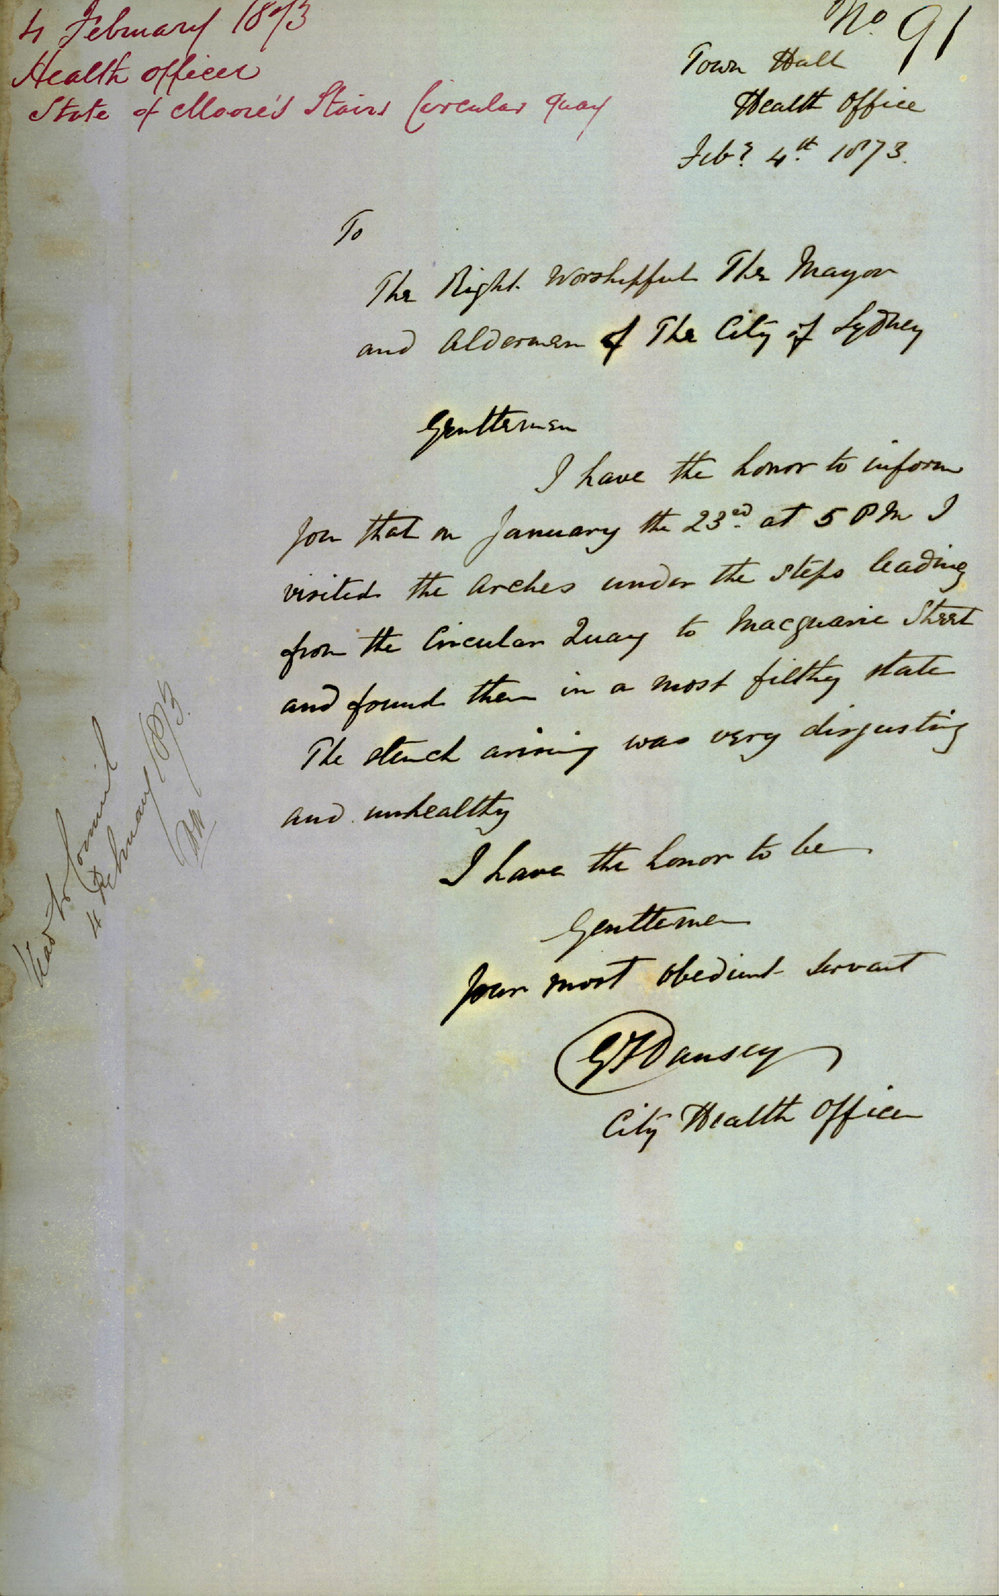 4 February 1873
Health officer
State of Moore's Stairs Circular Quay
No. 91
Town Hall
Health Office
Feby 4th 1873.
To
The Right Worshipful The Mayor
and Aldermen of The City of Sydney
Gentlemen
I have the honor to inform
you that on January the 23rd at 5 PM I
visited the Arches under the steps leading
from the Circular Quay to Macquarie Street
and found them in a most filthy state
The stench arising was very disgusting
and unhealthy
I have the honor to be
Gentlemen
Your most obedient servant
G F Dansey
City Health Officer
to Council
4 February 1873.